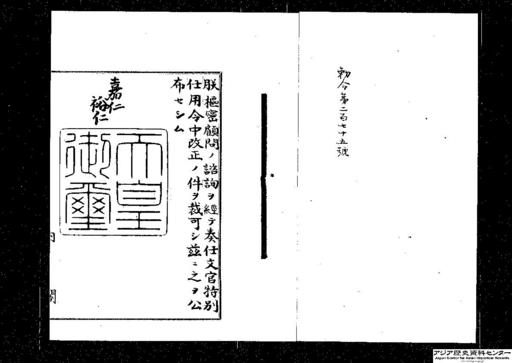 勅令第二百七十五號
朕樞密顧問ノ諮詢ヲ經テ奏任文官特別
任用令中改正ノ件ヲ裁可シ茲ニ之ヲ公
布セシム
嘉仁
裕仁
天皇
御璽
内
閣
アジア歴史資料センター
Japan Center for Asian Historical Records